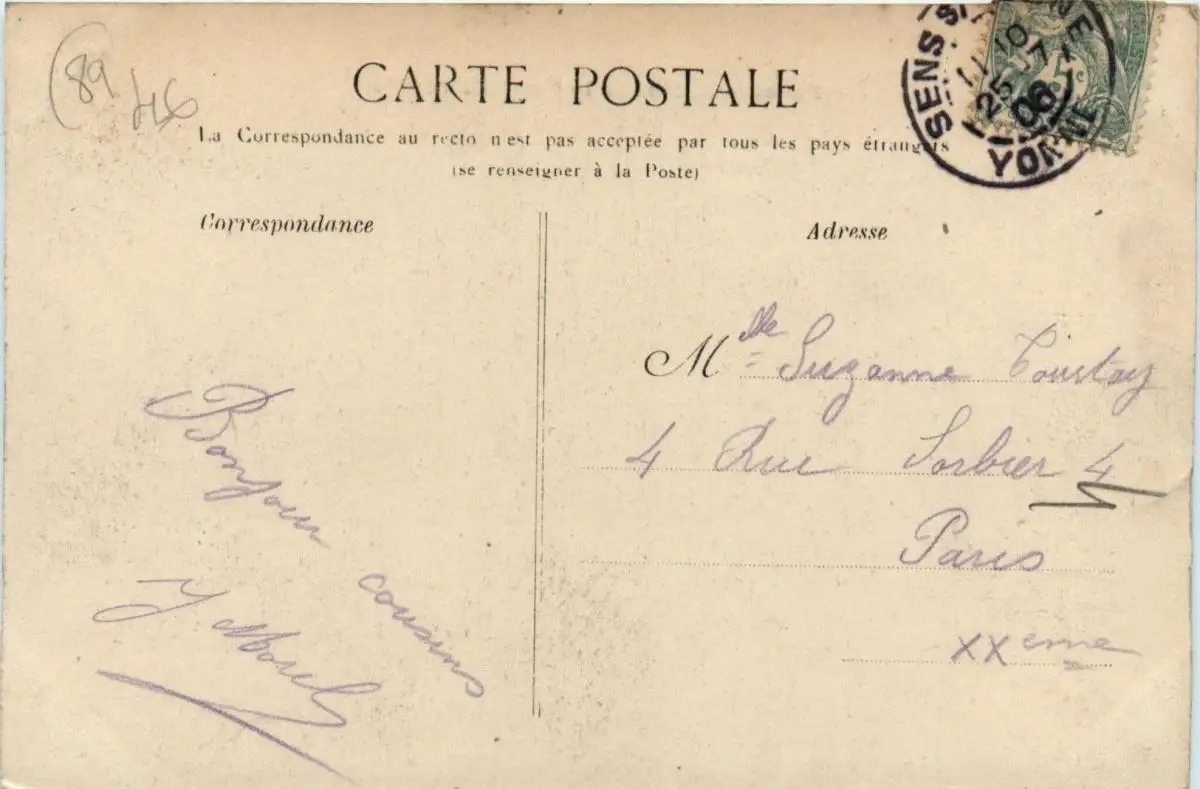 (89
46
CARTE POSTALE
La Correspondance au recto n'est pas acceptée par tous les pays étrangers
(se renseigner à la Poste)
SENS S NE
10
25 7
06
YONNE
5c
Correspondance
Adresse
Mlle Suzanne Toustay
4 Rue Sorbier 4
Paris
XXeme
Bonjour
cousins
Y. Morel